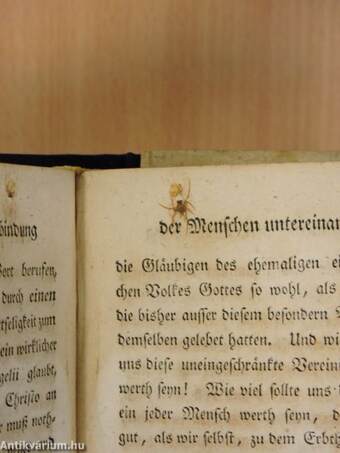 bindung
Wort berufen,
durch einen
tseligkeit zum
ein wirklicher
gelii glaubt,
Christo an
r muß noth-
und
der Menschen untereinan
die Gläubigen des ehemaligen ei
chen Volkes Gottes so wohl, als
die bisher ausser diesem besondern V
demselben gelebet hatten. Und wi
uns diese uneingeschränkte Verein
werth seyn! Wie viel sollte uns
ein jeder Mensch werth seyn, d
gut, als wir selbst, zu dem Erbth
Antikvárium.hu